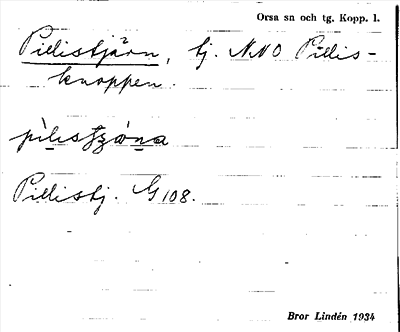 Orsa sn och tg. Kopp. l.
Pillistjärn, tj. NNO Pillis-
knoppen.
pìlistją̈na
Pillistj. G 108.
Bror Lindén 1934